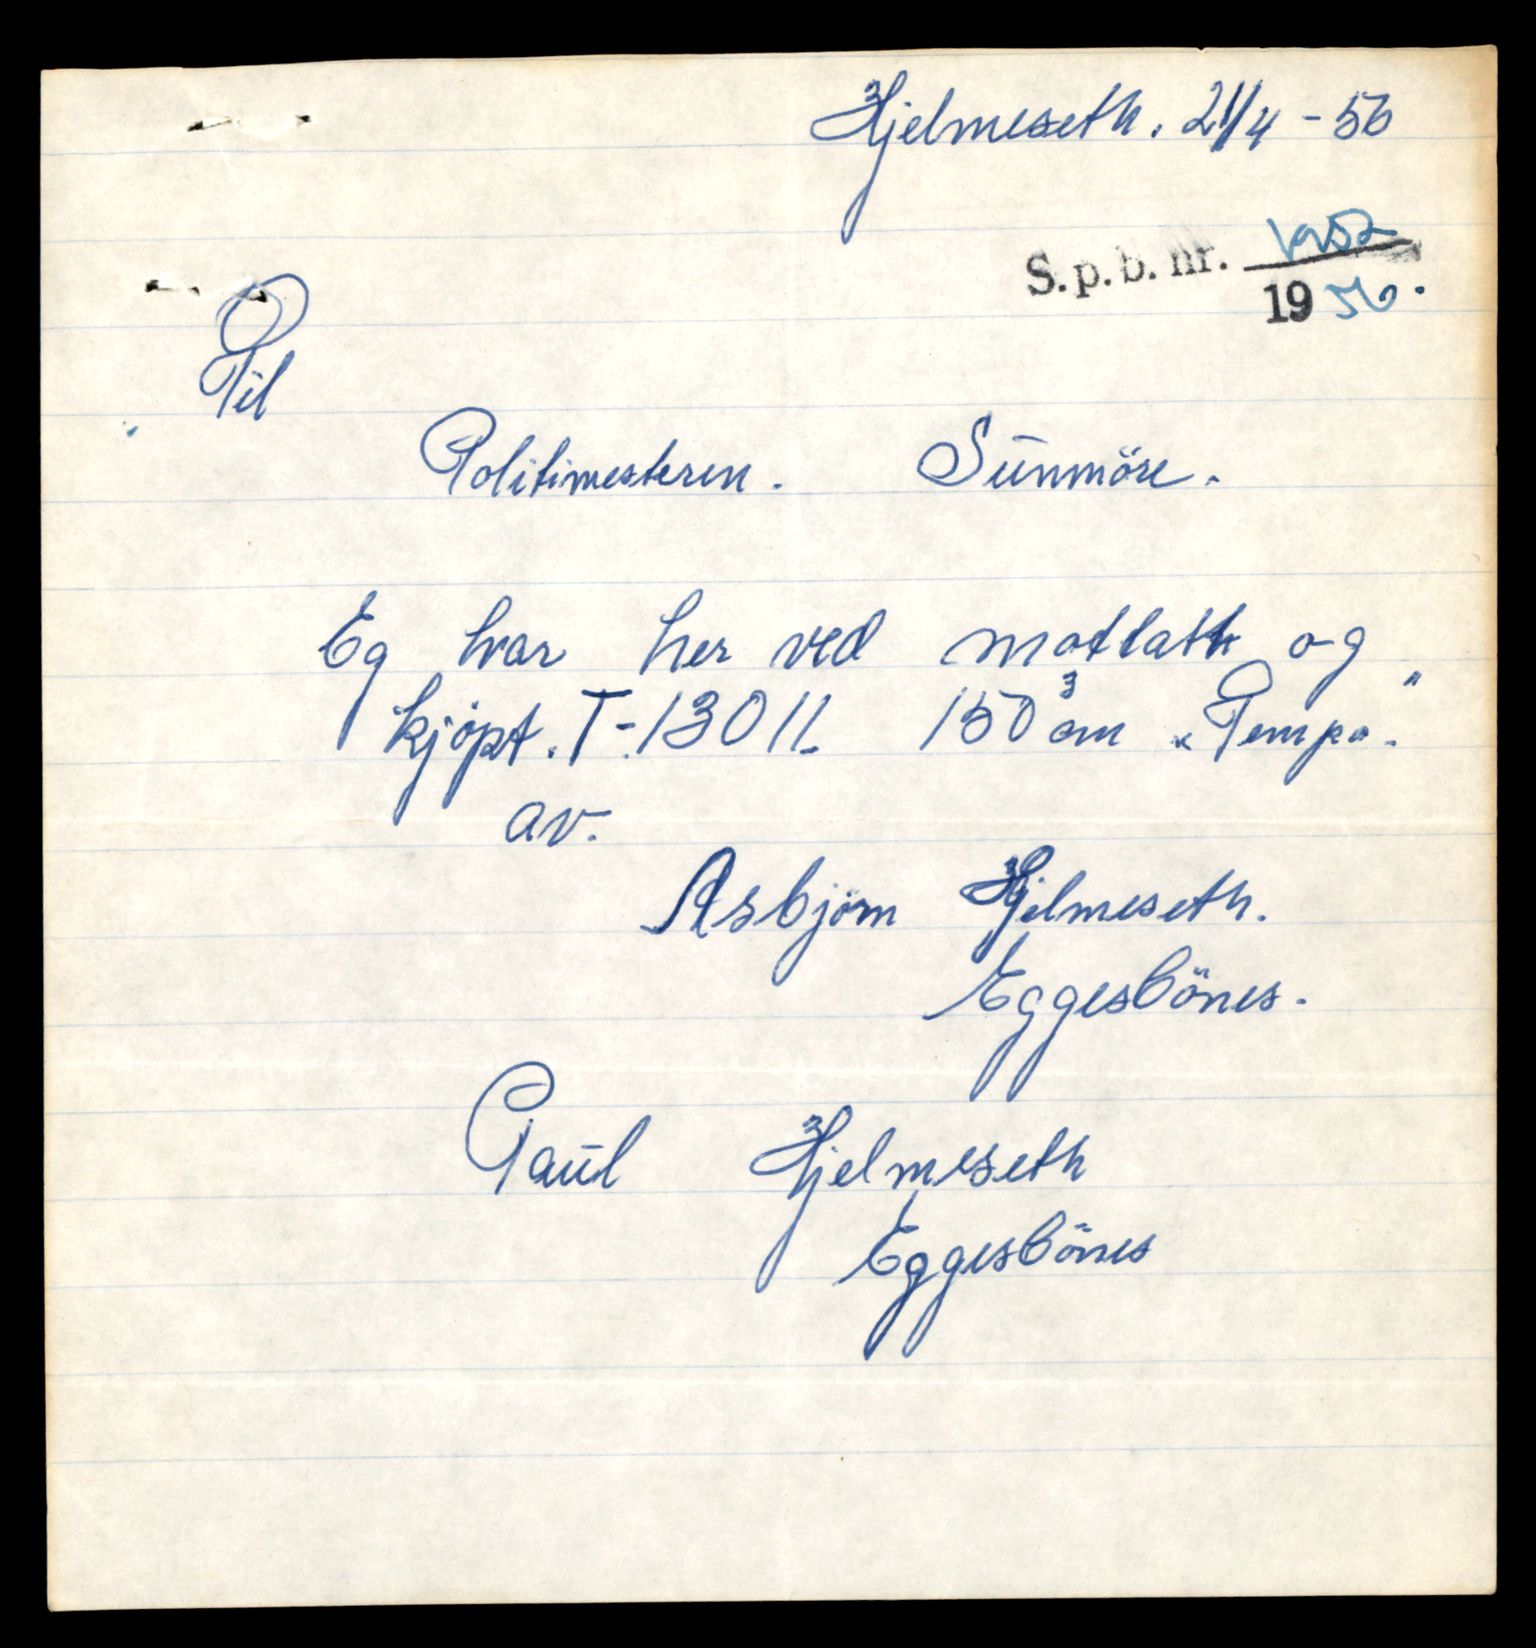 Hjelmeseth. 21/4 - 56
S. p. b. nr.
19 56.
Til
Politimesteren. Sunmöre.
Eg har her ved motlatt og
kjöpt. T-13011 150 cm³ „Tempo."
av.
Asbjörn Hjelmeseth.
Eggesbönes.
Paul Hjelmeseth
Eggesbönes